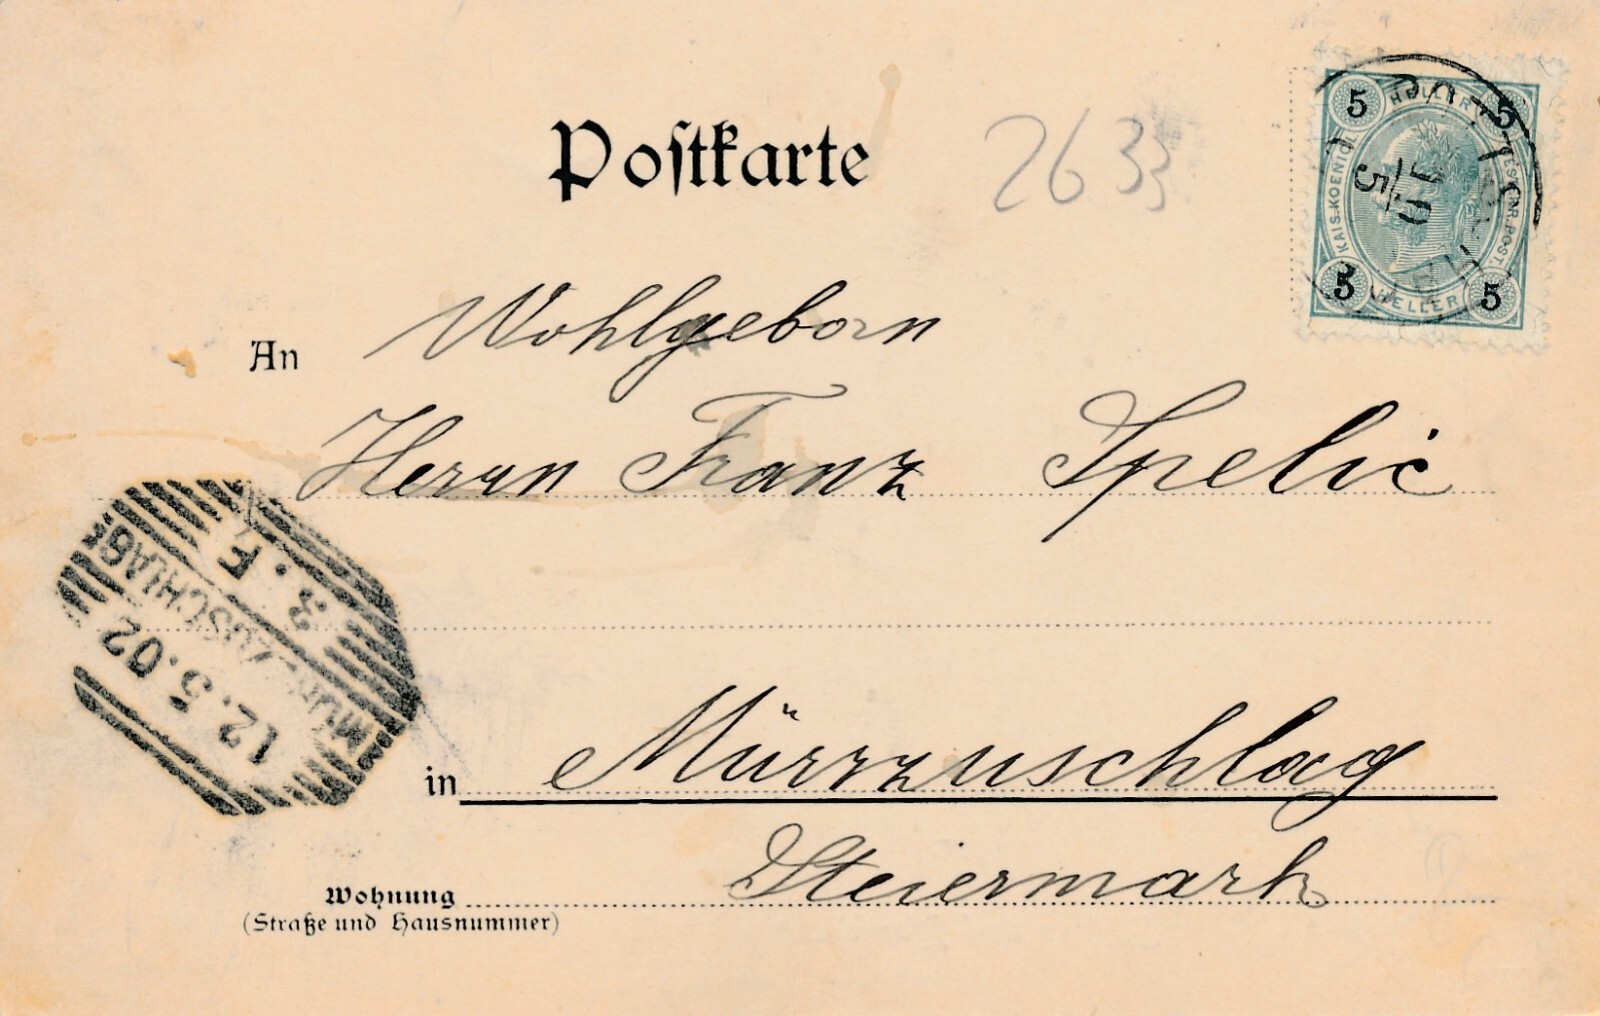 Postkarte
2633
5 HELLER 5
KAIS. KOENIGL.
5 HELLER 5
10
5
An Wohlgeborn
Herrn Franz Spelić
MÜRZZUSCHLAG
12.5.02
3. F
in Mürrzuschlag
Steiermark
Wohnung
(Straße und Hausnummer)